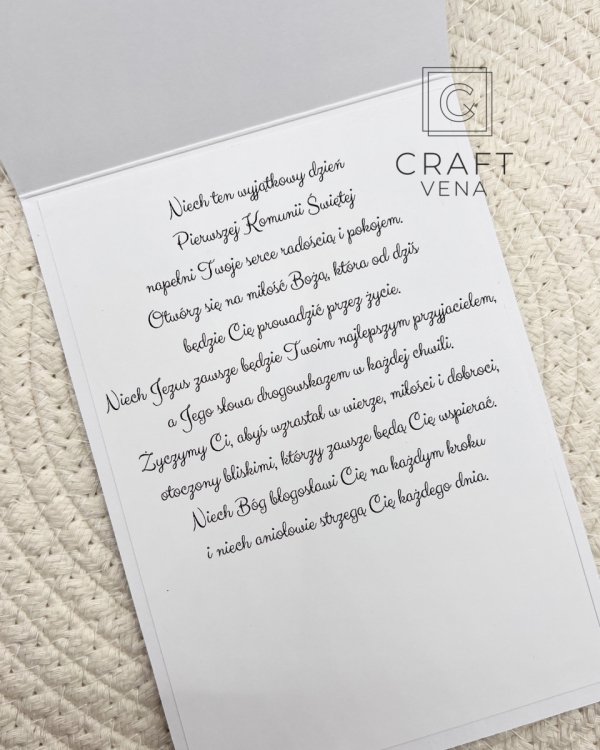 CRAFT
VENA
Niech ten wyjątkowy dzień
Pierwszej Komunii Świętej
napełni Twoje serce radością i pokojem.
Otwórz się na miłość Bożą, która od dziś
będzie Cię prowadzić przez życie.
Niech Jezus zawsze będzie Twoim najlepszym przyjacielem,
a Jego słowa drogowskazem w każdej chwili.
Życzymy Ci, abyś wzrastał w wierze, miłości i dobroci,
otoczony bliskimi, którzy zawsze będą Cię wspierać.
Niech Bóg błogosławi Cię na każdym kroku
i niech aniołowie strzegą Cię każdego dnia.